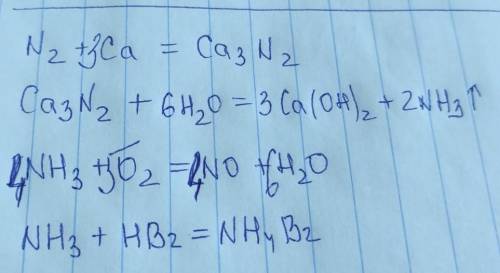 N₂ + 3Ca = Ca₃N₂
Ca₃N₂ + 6H₂O = 3Ca(OH)₂ + 2NH₃↑
4NH₃ + 5O₂ = 4NO + 6H₂O
NH₃ + HBr = NH₄Br